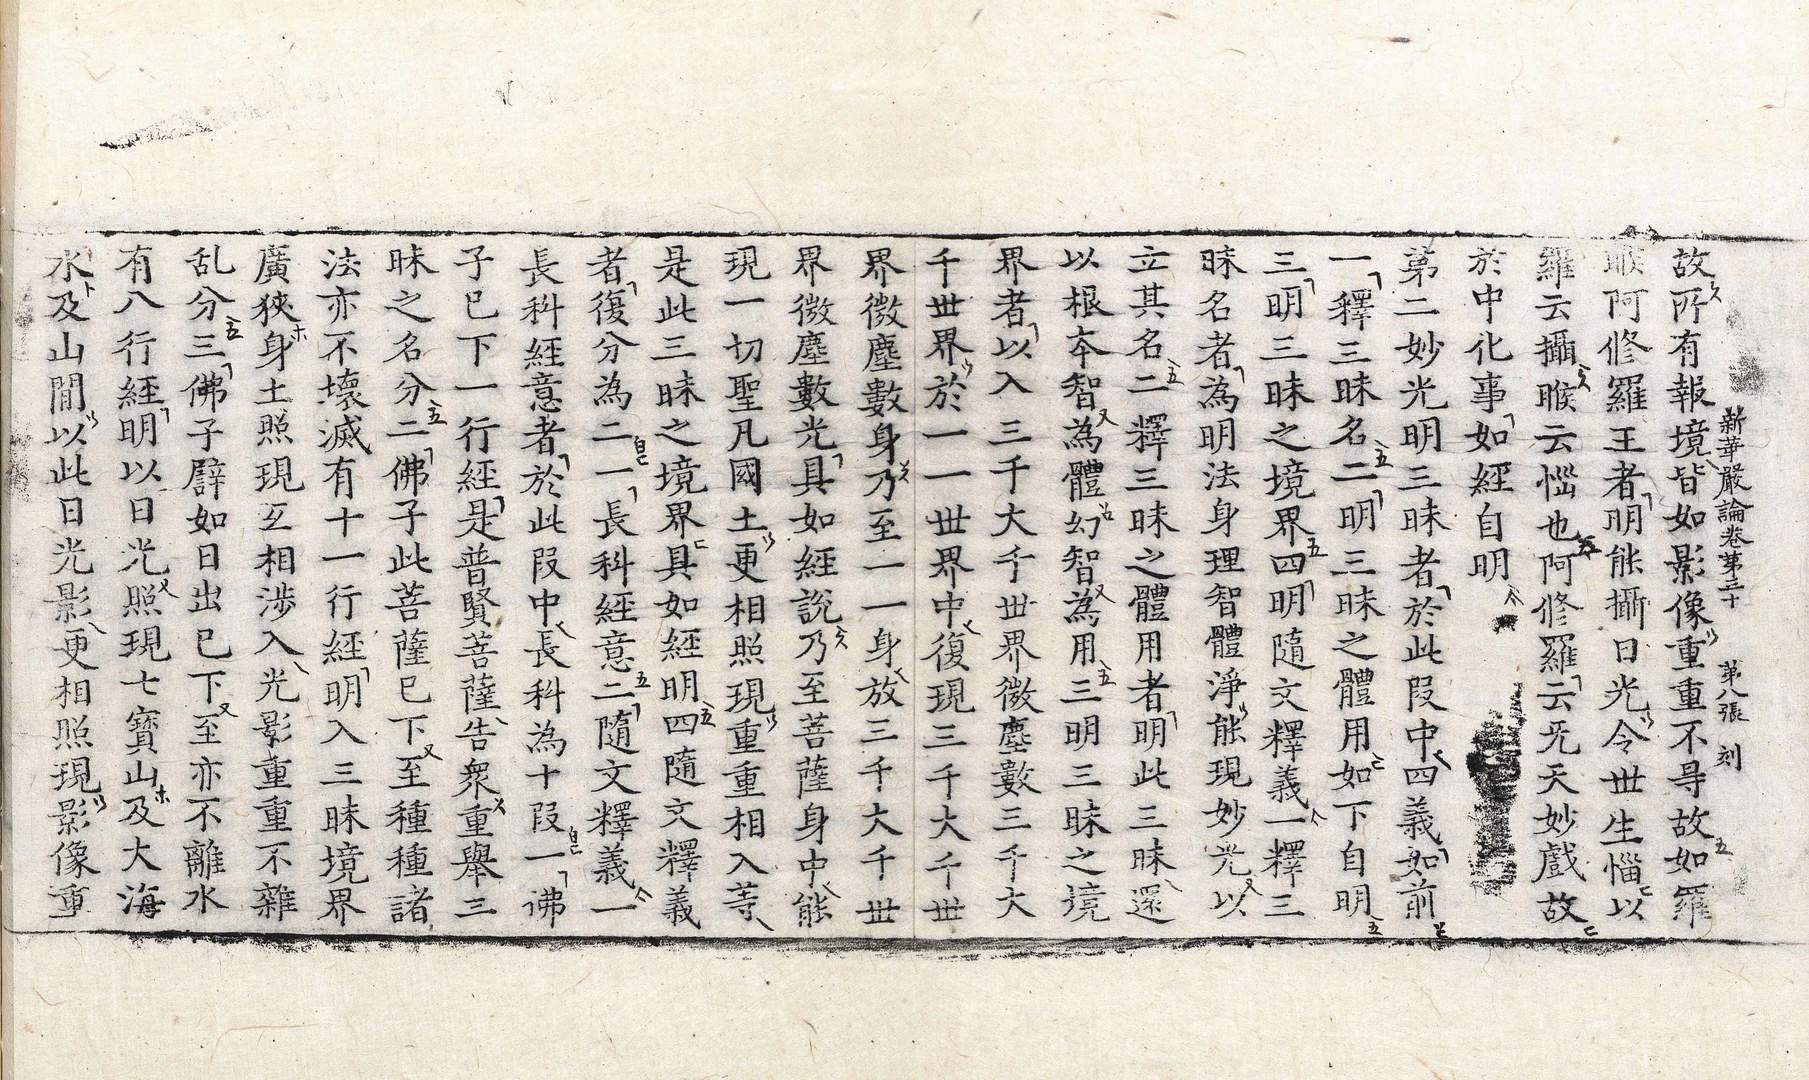 新華嚴論卷第三十　第八張　刻
故所有報境皆如影像重重不㝵故如羅
睺阿修羅王者明能攝日光令世生惱以
羅云攝睺云惱也阿修羅云无天妙戲故
於中化事如經自明
第二妙光明三昧者於此段中四義如前
一釋三昧名二明三昧之體用如下自明
三明三昧之境界四明隨文釋義一釋三
昧名者為明法身理智體淨能現妙光以
立其名二釋三昧之體用者明此三昧還
以根本智為體幻智為用三明三昧之境
界者以入三千大千世界微塵數三千大
千世界於一一世界中復現三千大千世
界微塵數身乃至一一身放三千大千世
界微塵數光具如經說乃至菩薩身中能
現一切聖凡國土更相照現重重相入等
是此三昧之境界具如經明四隨文釋義
者復分為二一長科經意二隨文釋義一
長科經意者於此段中長科為十段一佛
子已下一行經是普賢菩薩告衆重舉三
昧之名分二佛子此菩薩已下至種種諸
法亦不壞滅有十一行經明入三昧境界
廣狹身土照現互相涉入光影重重不雜
乱分三佛子譬如日出已下至亦不離水
有八行經明以日光照現七寶山及大海
水及山間以此日光影更相照現影像重